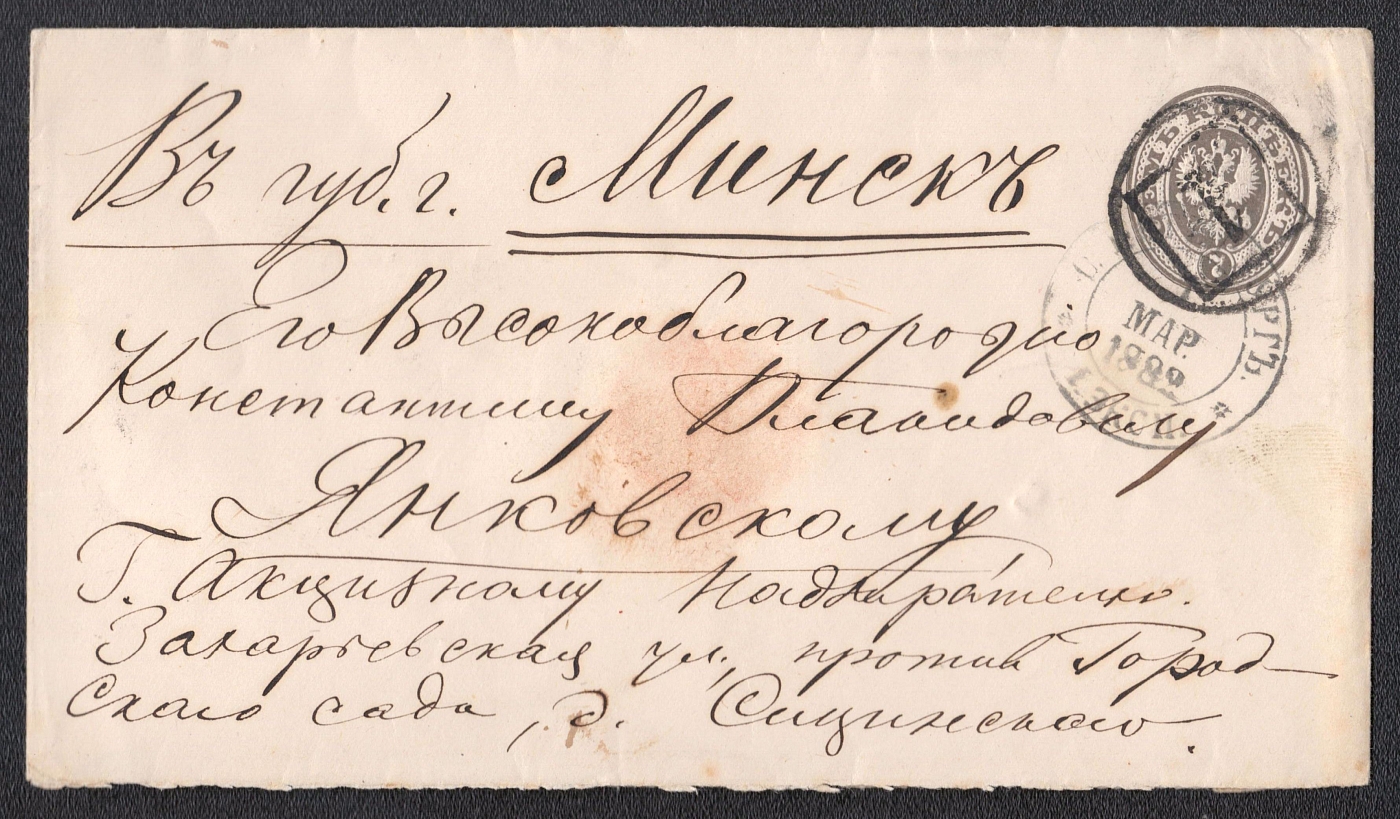 Въ губ. г. Минскъ
Его Высокоблагородію
Константину Плакидовичу
Янковскому
Г. Акцизному Надзирателю.
Захарьевская ул., противъ Город-
скаго сада, д. Сущинскаго.
СЕМЬ КОПѢЕКЪ
7
1
МАР.
1882